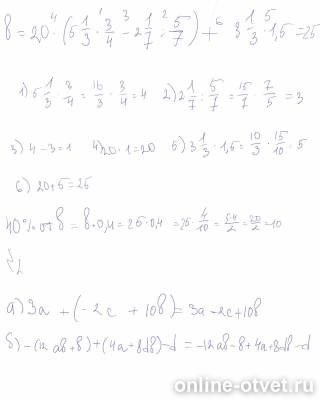 b = 20 · (5 1/3 · 3/4 - 2 1/7 : 5/7) + 3 1/3 · 1,5 = 25
1) 5 1/3 · 3/4 = 16/3 · 3/4 = 4 2) 2 1/7 : 5/7 = 15/7 · 7/5 = 3
3) 4 - 3 = 1 4) 20 · 1 = 20 5) 3 1/3 · 1,5 = 10/3 · 15/10 = 5
6) 20 + 5 = 25
40% от b = b · 0,4 = 25 · 0,4 = 25 · 4/10 = 5·4/2 = 20/2 = 10
а) 3a + (-2c + 10b) = 3a - 2c + 10b
б) -(12ab + 8) + (4a + 8db) - d = -12ab - 8 + 4a + 8db - d
online-otvet.ru